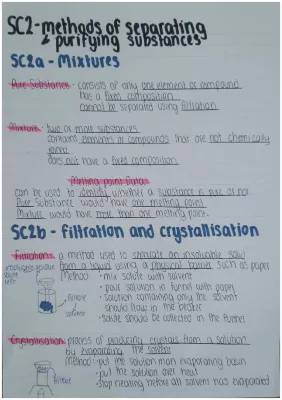 SC2-methods of separating
& purifying substances
SC2a - Mixtures
Pure Substance - consists of only one element or compound
has a fixed composition
cannot be separated using filtration
Mixture - two or more substances
contains elements or compounds that are not chemically
joined
does not have a fixed composition
Melting point Data
can be used to identify whether a substance is pure or not
Pure substance would have one melting point
Mixture would have more than one melting point.
SC2b - filtration and crystallisation
Filtration - a method used to separate an insoluble solid
from a liquid using a physical barrier such as paper
insoluble residue
Method - mix solute with solvent
- pour solution in funnel with paper
- solution containing only the solvent
should flow in the beaker
- solute should be collected in the funnel
filtrate
solvent
Crystallisation - process of producing crystals from a solution
by evaporating the solvent
Method - put the solution in an evaporating basin
- put the solution over heat
- stop heating before all solvent has evaporated